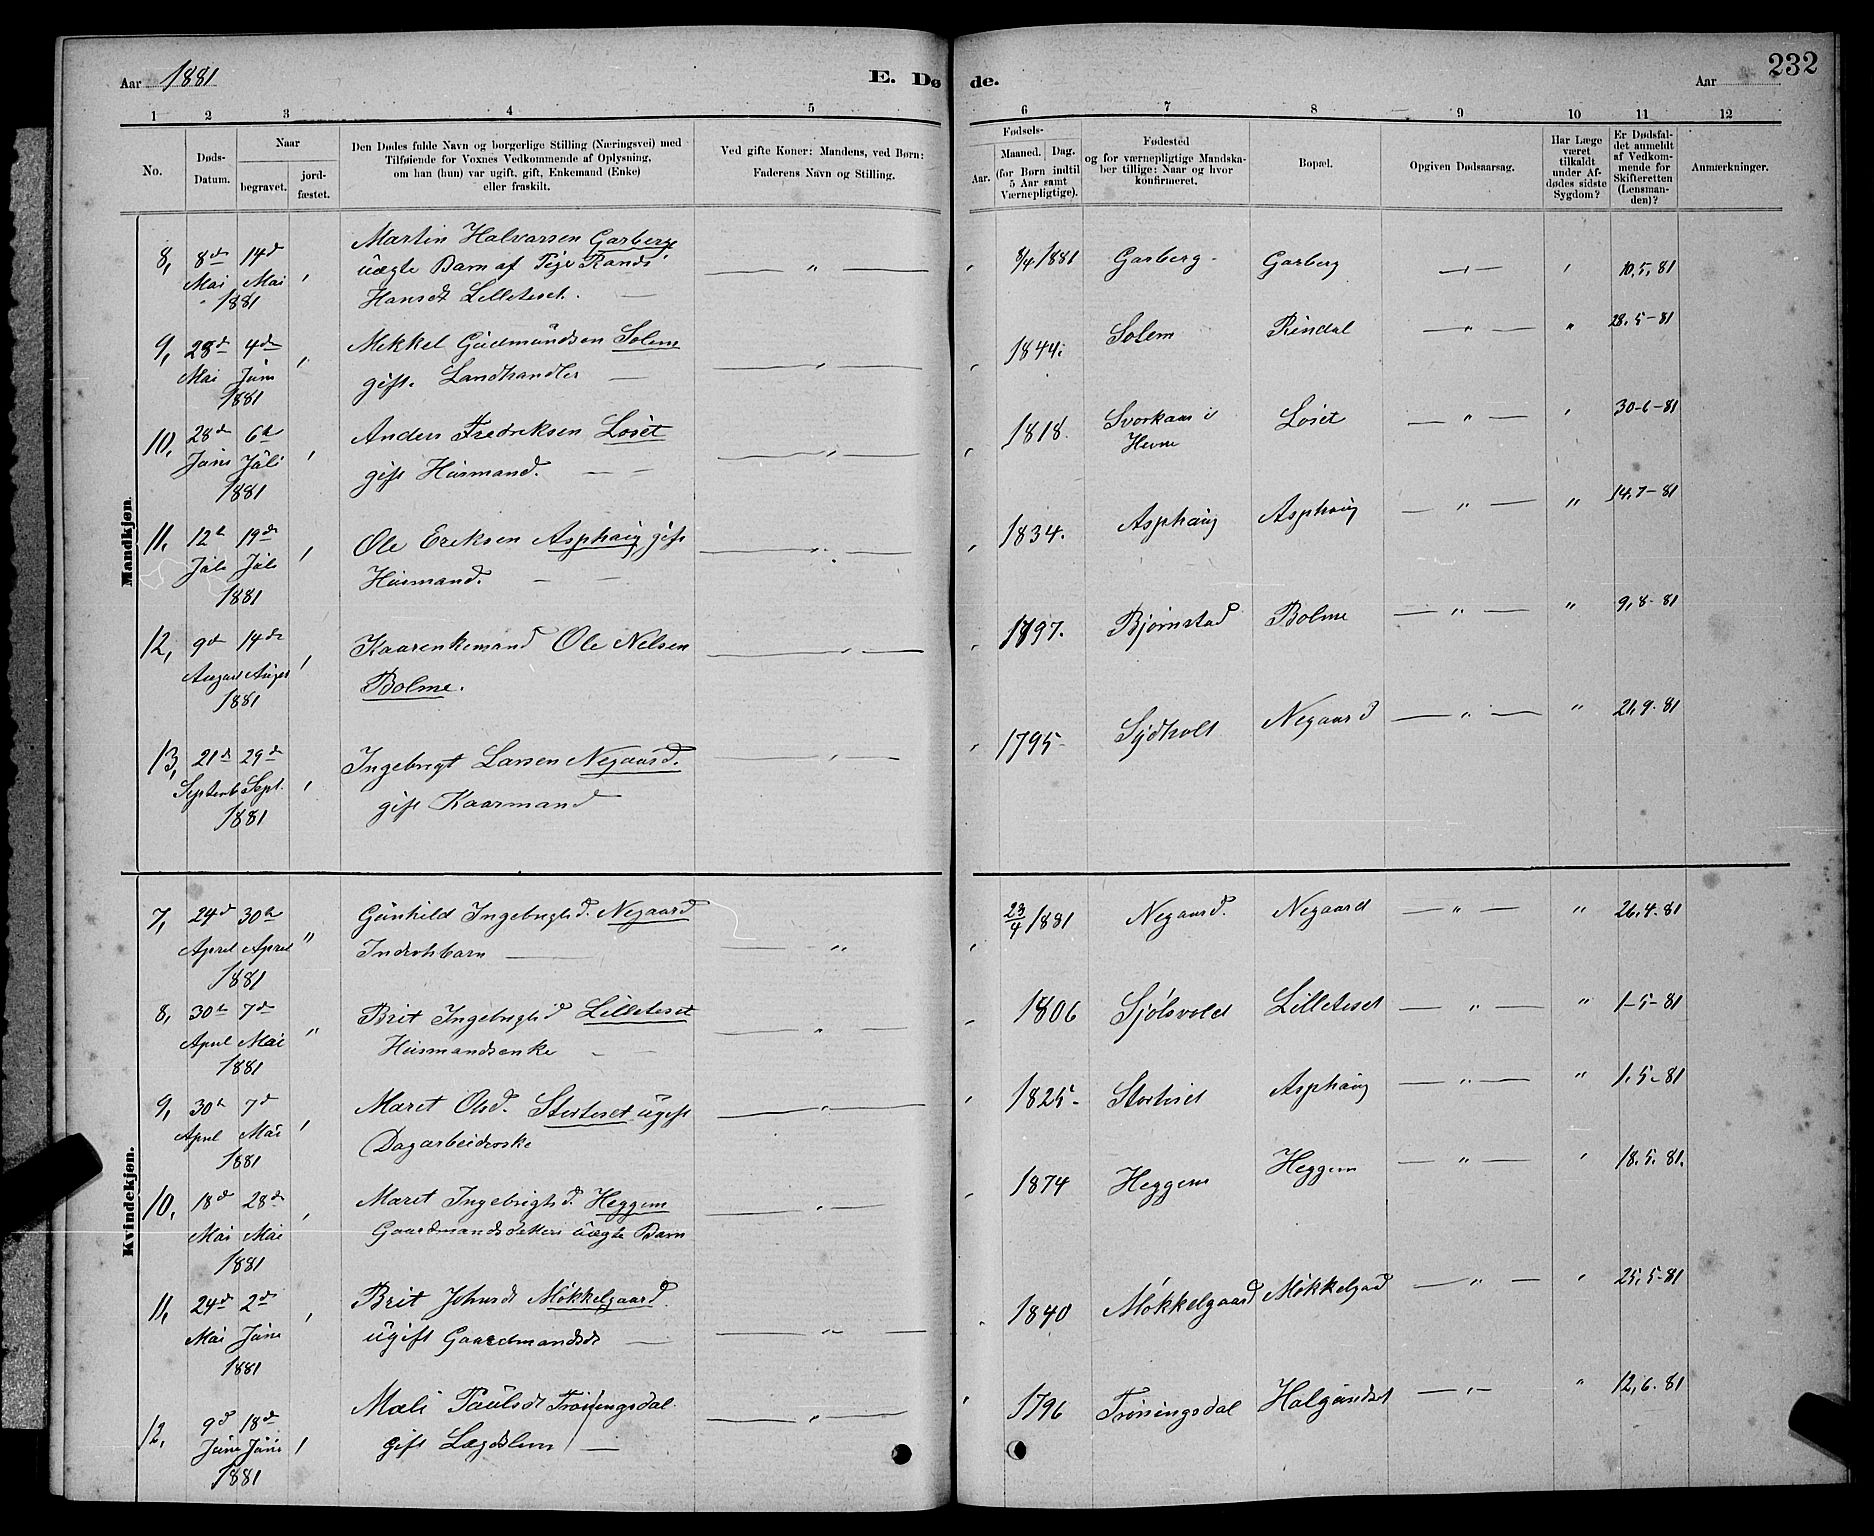 Aar 1881
E. Dø
de.
Aar
232
1 2 3 4 5 6 7 8 9 10 11 12
No.
Døds-
Datum.
Naar
begravet.
jord-
fæstet.
Den Dødes fulde Navn og borgerlige Stilling (Næringsvei) med
Tilføiende for Voxnes Vedkommende af Oplysning,
om han (hun) var ugift, gift, Enkemand (Enke)
eller fraskilt.
Ved gifte Koner: Mandens, ved Børn:
Faderens Navn og Stilling.
Fødsels-
Aar.
Maaned. Dag.
(for Børn indtil
5 Aar samt
Værnepligtige).
Fødested
og for værnepligtige Mandska-
ber tillige: Naar og hvor
konfirmeret.
Bopæl.
Opgiven Dødsaarsag.
Har Læge
været
tilkaldt
under Af-
dødes sidste
Sygdom?
Er Dødsfal-
det anmeldt
af Vedkom-
mende for
Skifteretten
(Lensman-
den)?
Anmærkninger.
Mandkjøn.
8, 8de 14d Martin Halvarsen Garberg — " — 8/4 1881 Garberg - Garberg — " — " 10,5,81
Mai Mai uægte Barn af Pige Randi
1881 Hansdt Lilleteset. —
9, 28d 4de Mekkel Gudmundsen Solem — " — 1844. Solem Rindal — " — " 28.5-81
Mai Juni gift. Landhandler —
1881
10, 28d 6te Anders Fredriksen Løset — " — 1818. Svorkaas i Løset — " — " 30-6-81
Juni Juli gift Husmand. — — Hevne
1881
11, 12te 19de Ole Eriksen Asphaug gift — " — 1834. Asphaug Asphaug — " — " 14,7-81
Juli Juli Husmand. — —
1881
12, 9de 14de Kaarenkemand Ole Nelsen — " — 1797. Bjørnstad Bolme — " — " 9,8-81
August August Bolme.
1881
13, 21de 29de Ingebrigt Larsen Negaard. — " — 1795- Sydholt Negaard — " — " 21,9.81
Septemb. Sept. gift Kaarmand
1881
Kvindekjøn.
7, 24d 30te Gunhild Ingebrigtsd. Negaard — " 23/4 1881 Negaard. Negaard — " — " 26.4.81
April April
1881
8, 30te 7de Brit Ingebrigtsd Lilleteset — " — 1806 Sjølsvold Lilleteset — " — " 1-5-81
April Mai Husmandsenke — —
1881
9, 30te 7de Maret Olsd. Storteset ugift — " — 1825- Storteset Asphaug — " — " 1.5-81
April Mai Dagarbeiderske
1881
10, 18de 28de Maret Ingebrigtsd. Heggem — " — 1874 Heggem Heggem — " — " 18.5.81.
Mai Mai Gaardmandsdatters uægte Barn
1881
11, 24de 2de Brit Johnsdt Møkkelgaard. — " — 1840 Møkkelgaard Møkkelgad — " — " 25.5-81
Mai Juni ugift Gaardmandsdt —
1881
12, 9d 18de Mali Paulsdt Trønningsdal — " — 1796 Trøningsdal Halgundset — " — " 12,6.81
Juni Juni gift Lægdslem —
1881